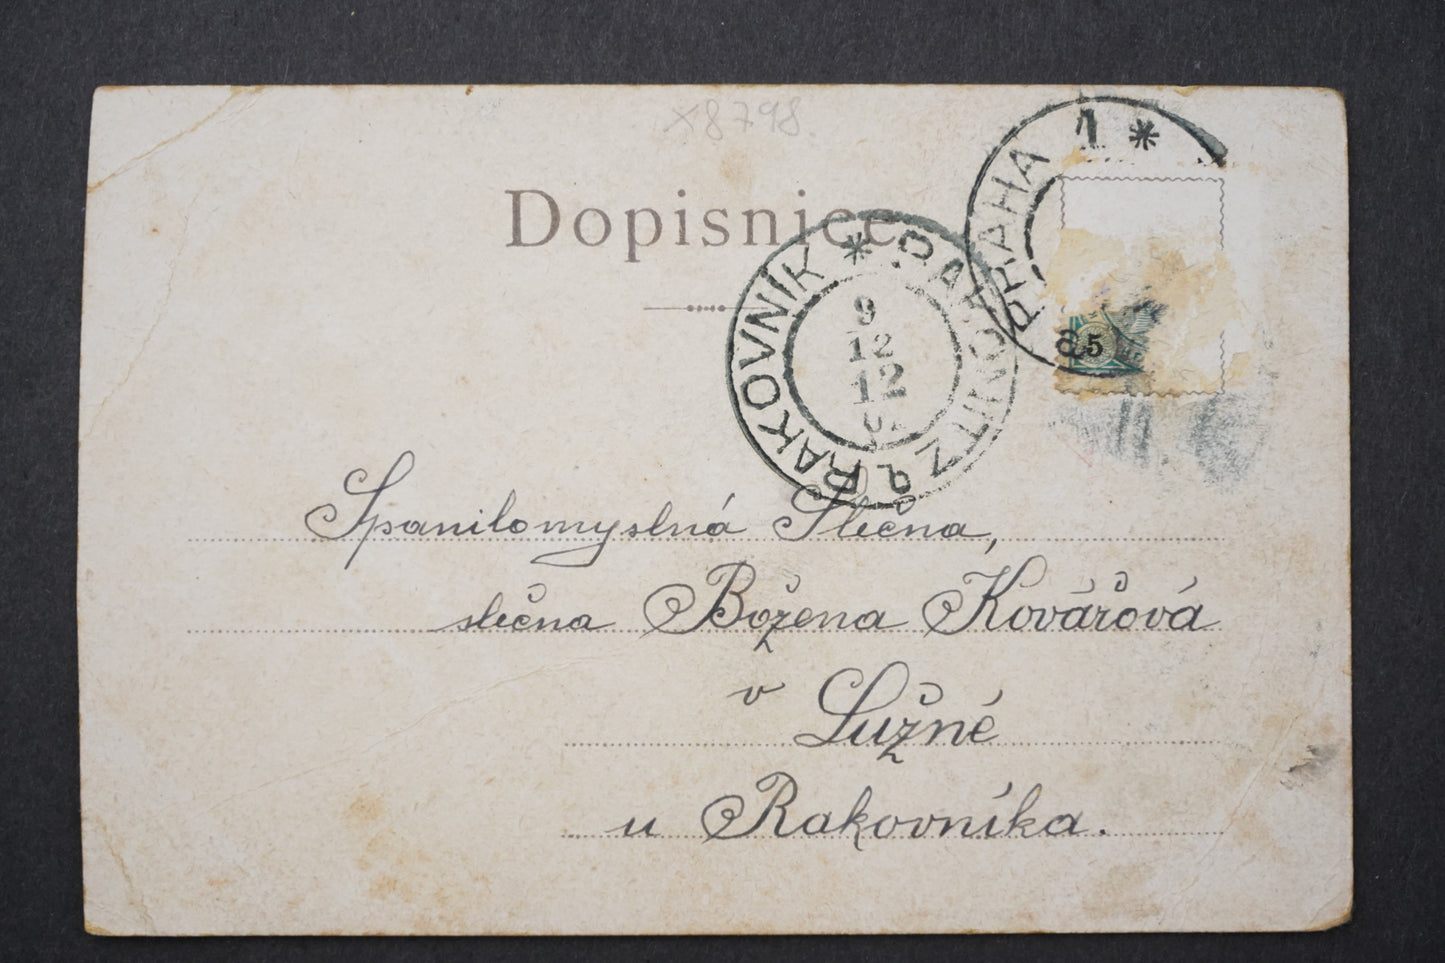 x8798.
Dopisnice
PRAHA 1 *
a
5
RAKOVNÍK * RAKONITZ
9
12
12
Spanilomyslná Slečna,
slečna Božena Kovářová
v Lužné
u Rakovníka.